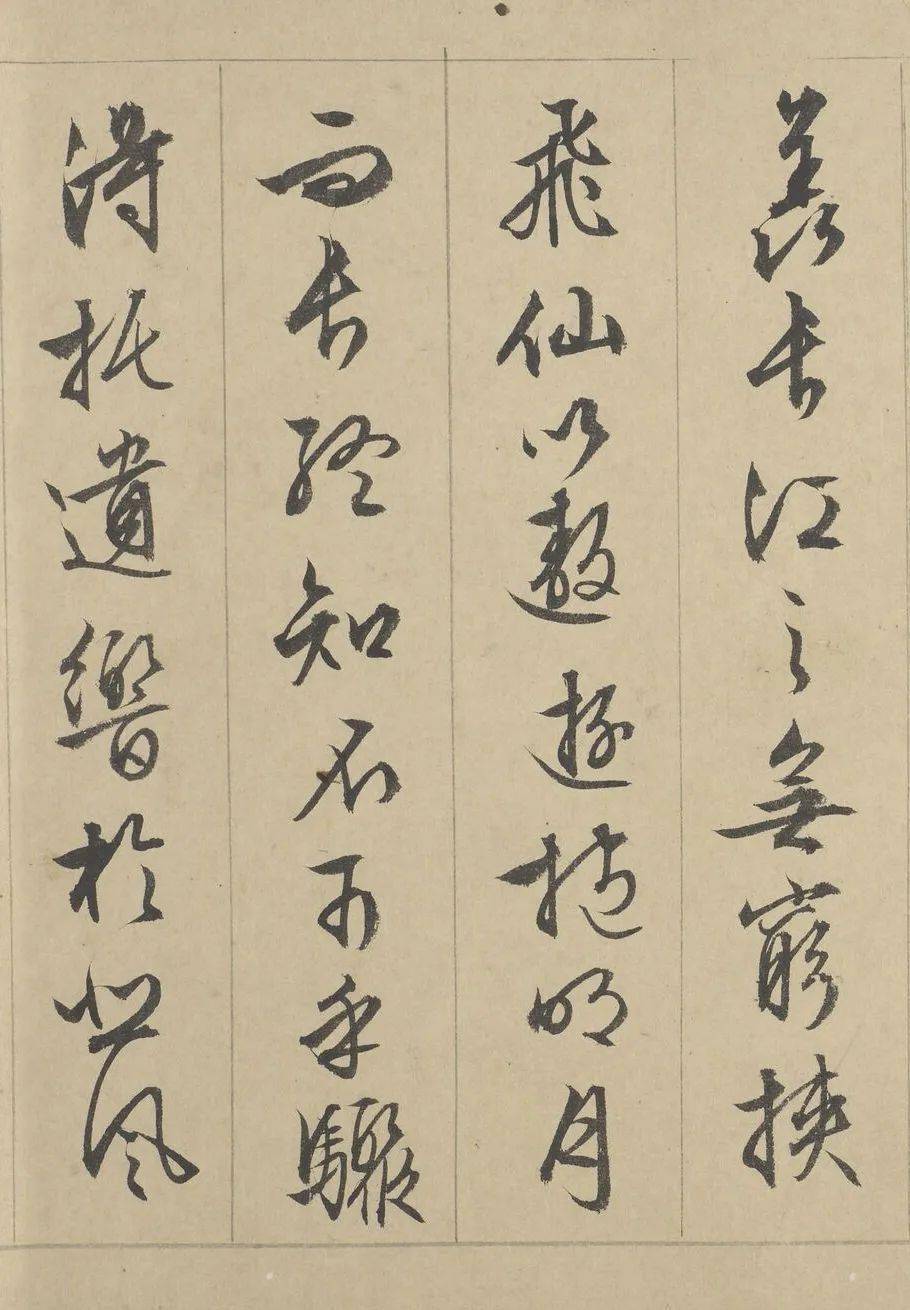 羨長江之無窮挾
飛仙以遨遊抱明月
而長終知不可乎驟
得托遺響於悲風